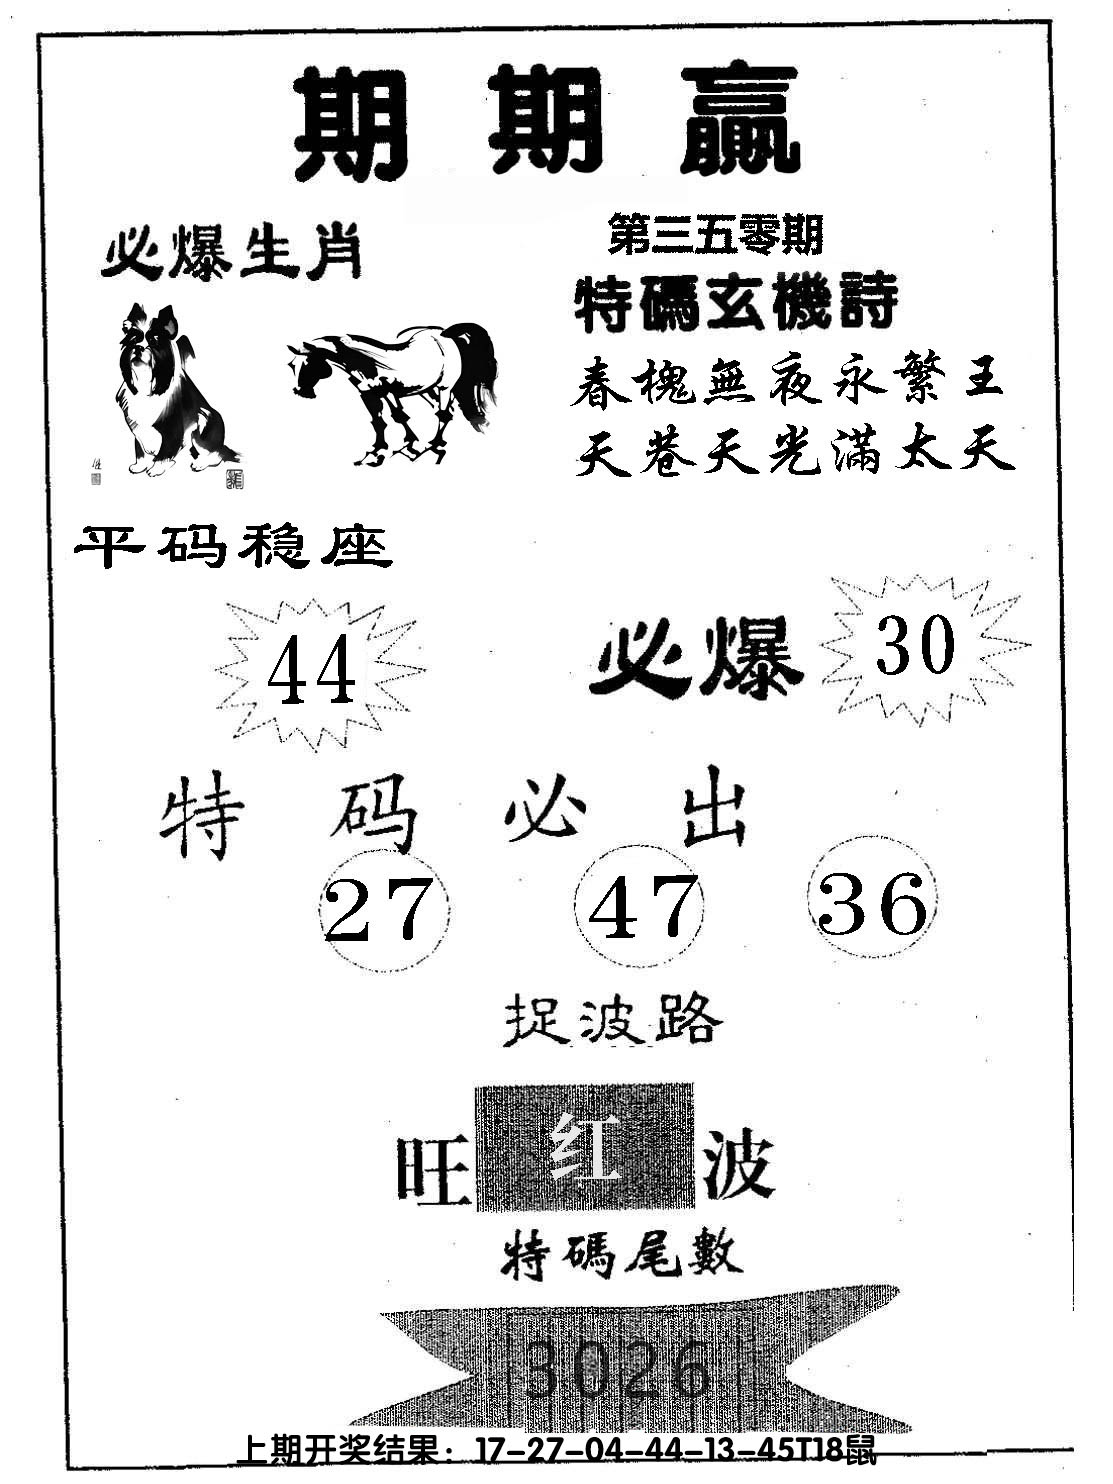 期期赢
必爆生肖
第三五零期
特碼玄機詩
春槐無夜永繁王
天巷天光滿太天
平码稳座
44
必爆
30
特码必出
27
47
36
捉波路
旺红波
特碼尾數
3026
上期开奖结果：17-27-04-44-13-45T18鼠